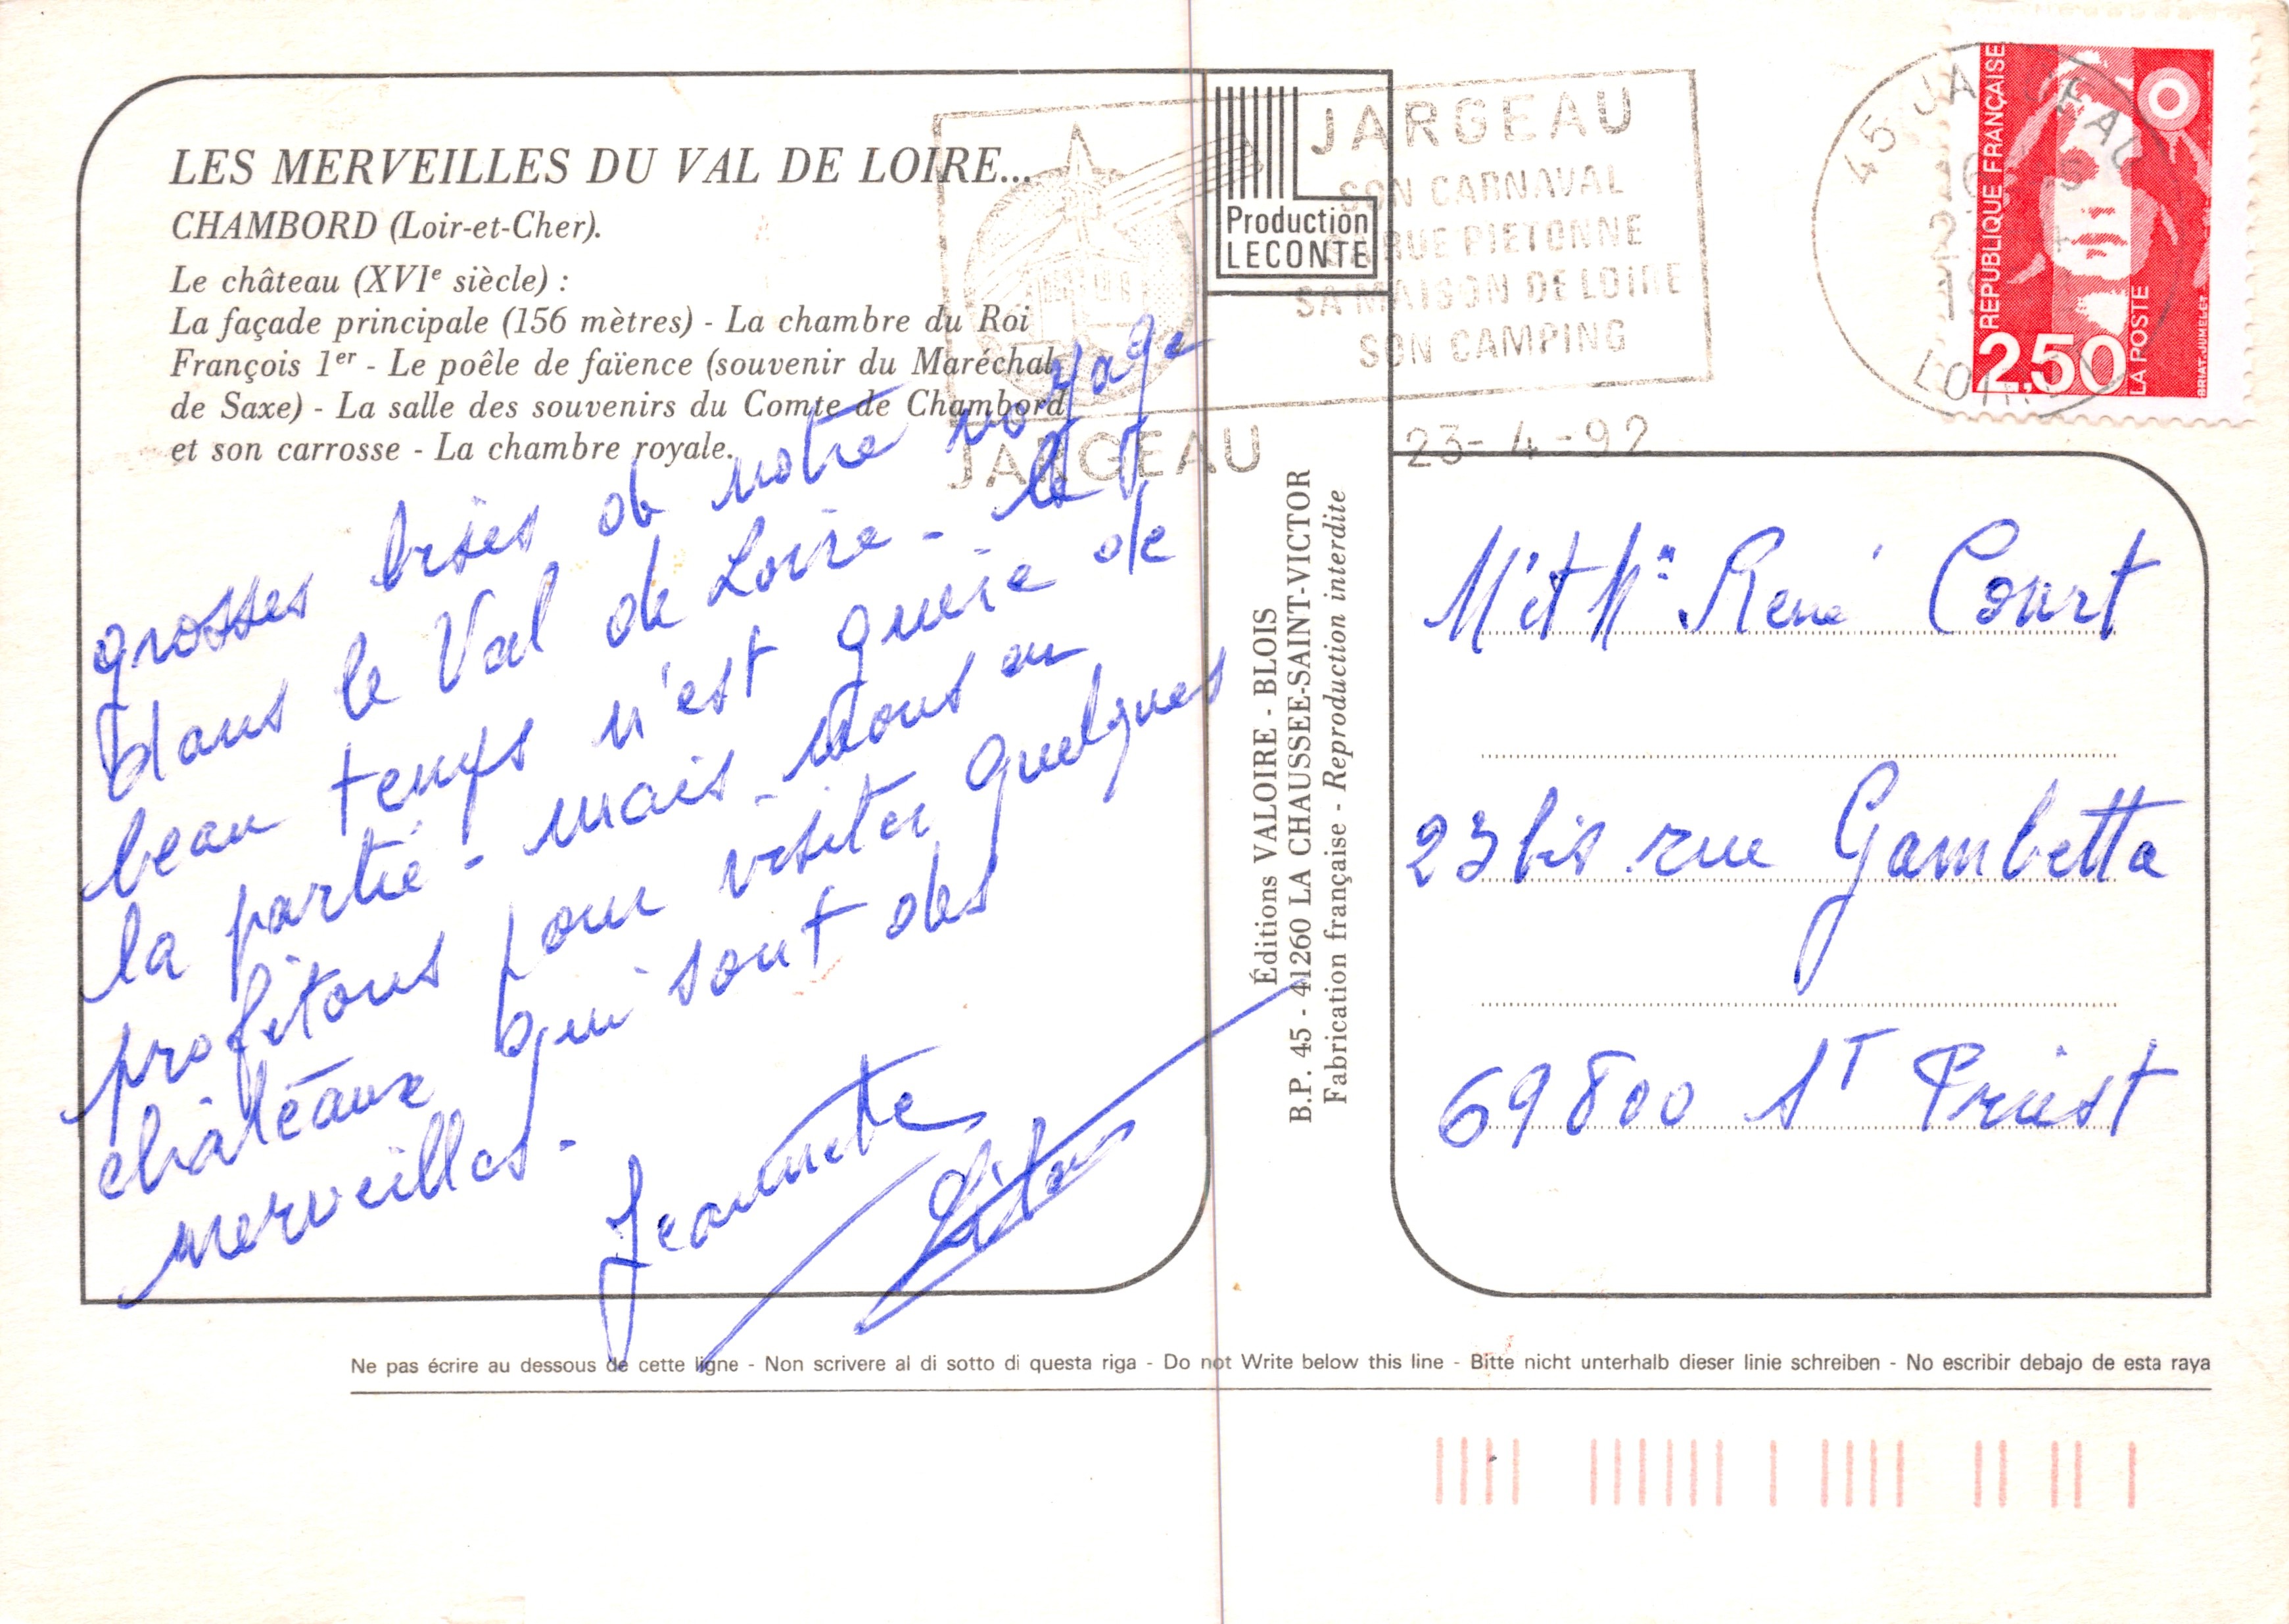 LES MERVEILLES DU VAL DE LOIRE...
CHAMBORD (Loir-et-Cher).
Le château (XVIe siècle) :
La façade principale (156 mètres) - La chambre du Roi
François 1er - Le poêle de faïence (souvenir du Maréchal
de Saxe) - La salle des souvenirs du Comte de Chambord
et son carrosse - La chambre royale.
grosses bises de notre voyage
dans le Val de Loire - le
beau temps n'est guère de
la partie - mais nous en
profitons pour visiter quelques
châteaux qui sont des
merveilles -
Jeannette
Production
LECONTE
JARGEAU
SON CARNAVAL
SA RUE PIETONNE
SA MAISON DE LOIRE
SON CAMPING
JARGEAU
23-4-92
45 JARGEAU
LOIRET
REPUBLIQUE FRANÇAISE
2,50
LA POSTE
BRIAT-JUMELET
Éditions VALOIRE - BLOIS
B.P. 45 - 41260 LA CHAUSSEE-SAINT-VICTOR
Fabrication française - Reproduction interdite
M et Me René Court
23 bis rue Gambetta
69800 ST Priest
Ne pas écrire au dessous de cette ligne - Non scrivere al di sotto di questa riga - Do not Write below this line - Bitte nicht unterhalb dieser linie schreiben - No escribir debajo de esta raya